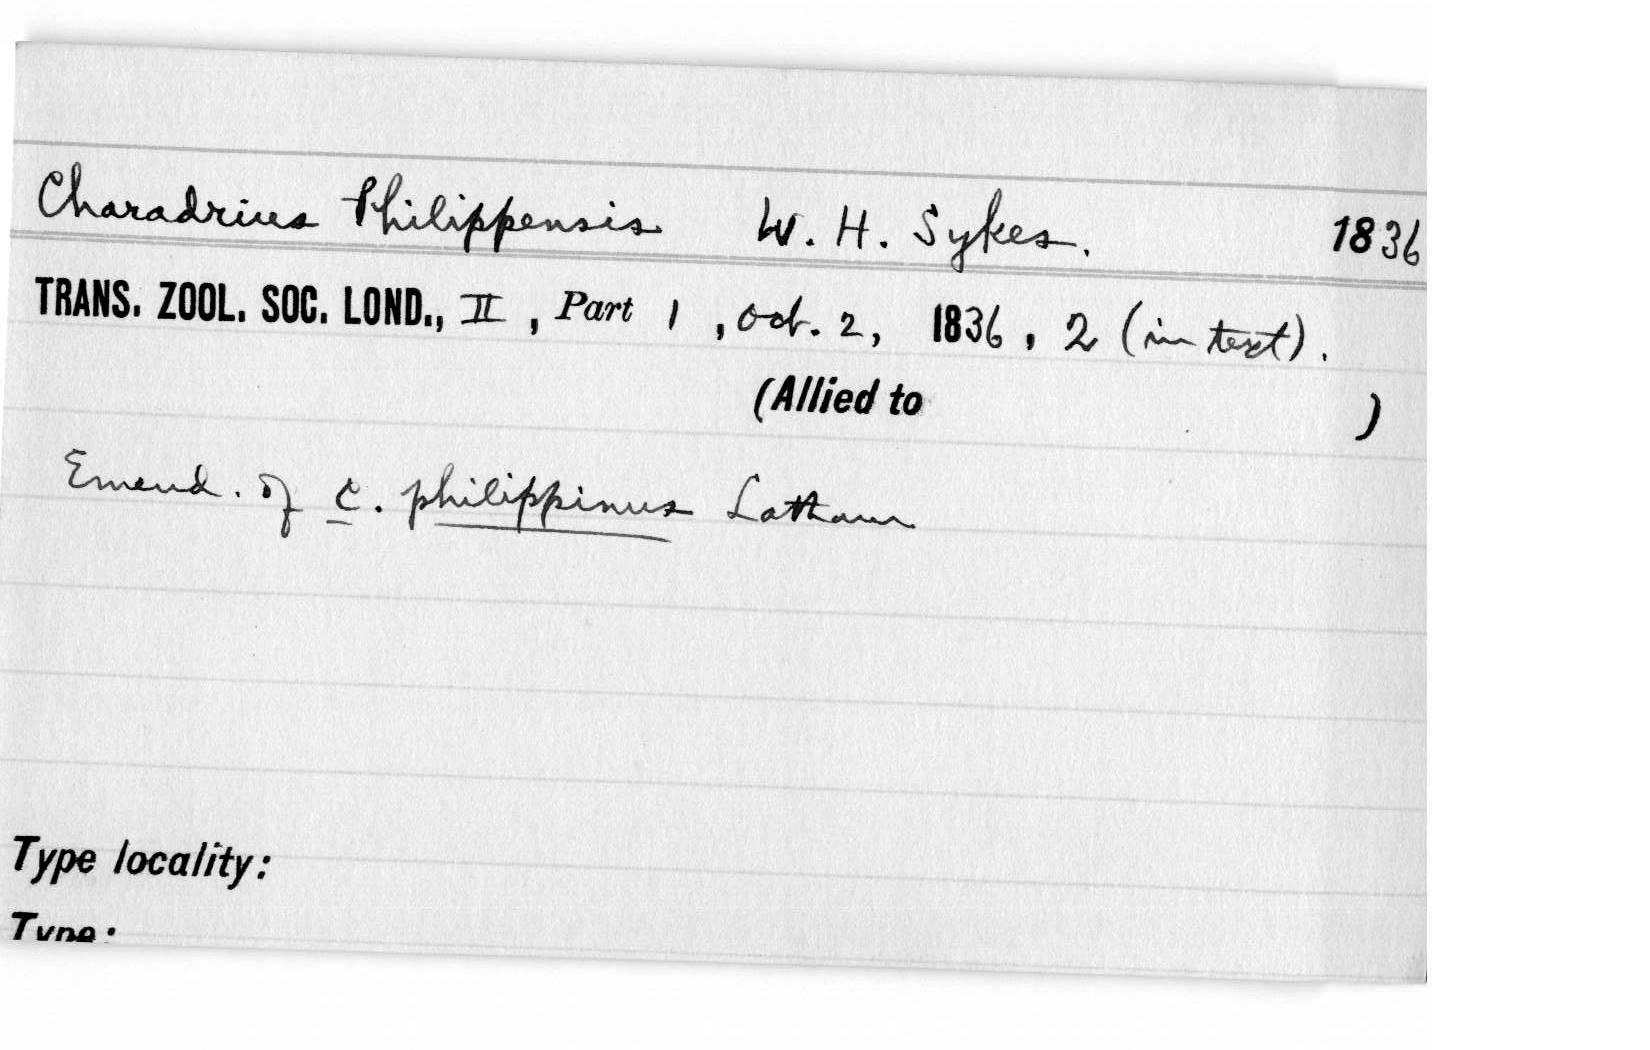 Charadrius Philippensis W. H. Sykes. 1836
TRANS. ZOOL. SOC. LOND., II, Part 1, Oct. 2, 1836, 2 (in text).
(Allied to )
Emend. of C. philippinus Latham
Type locality:
Type: